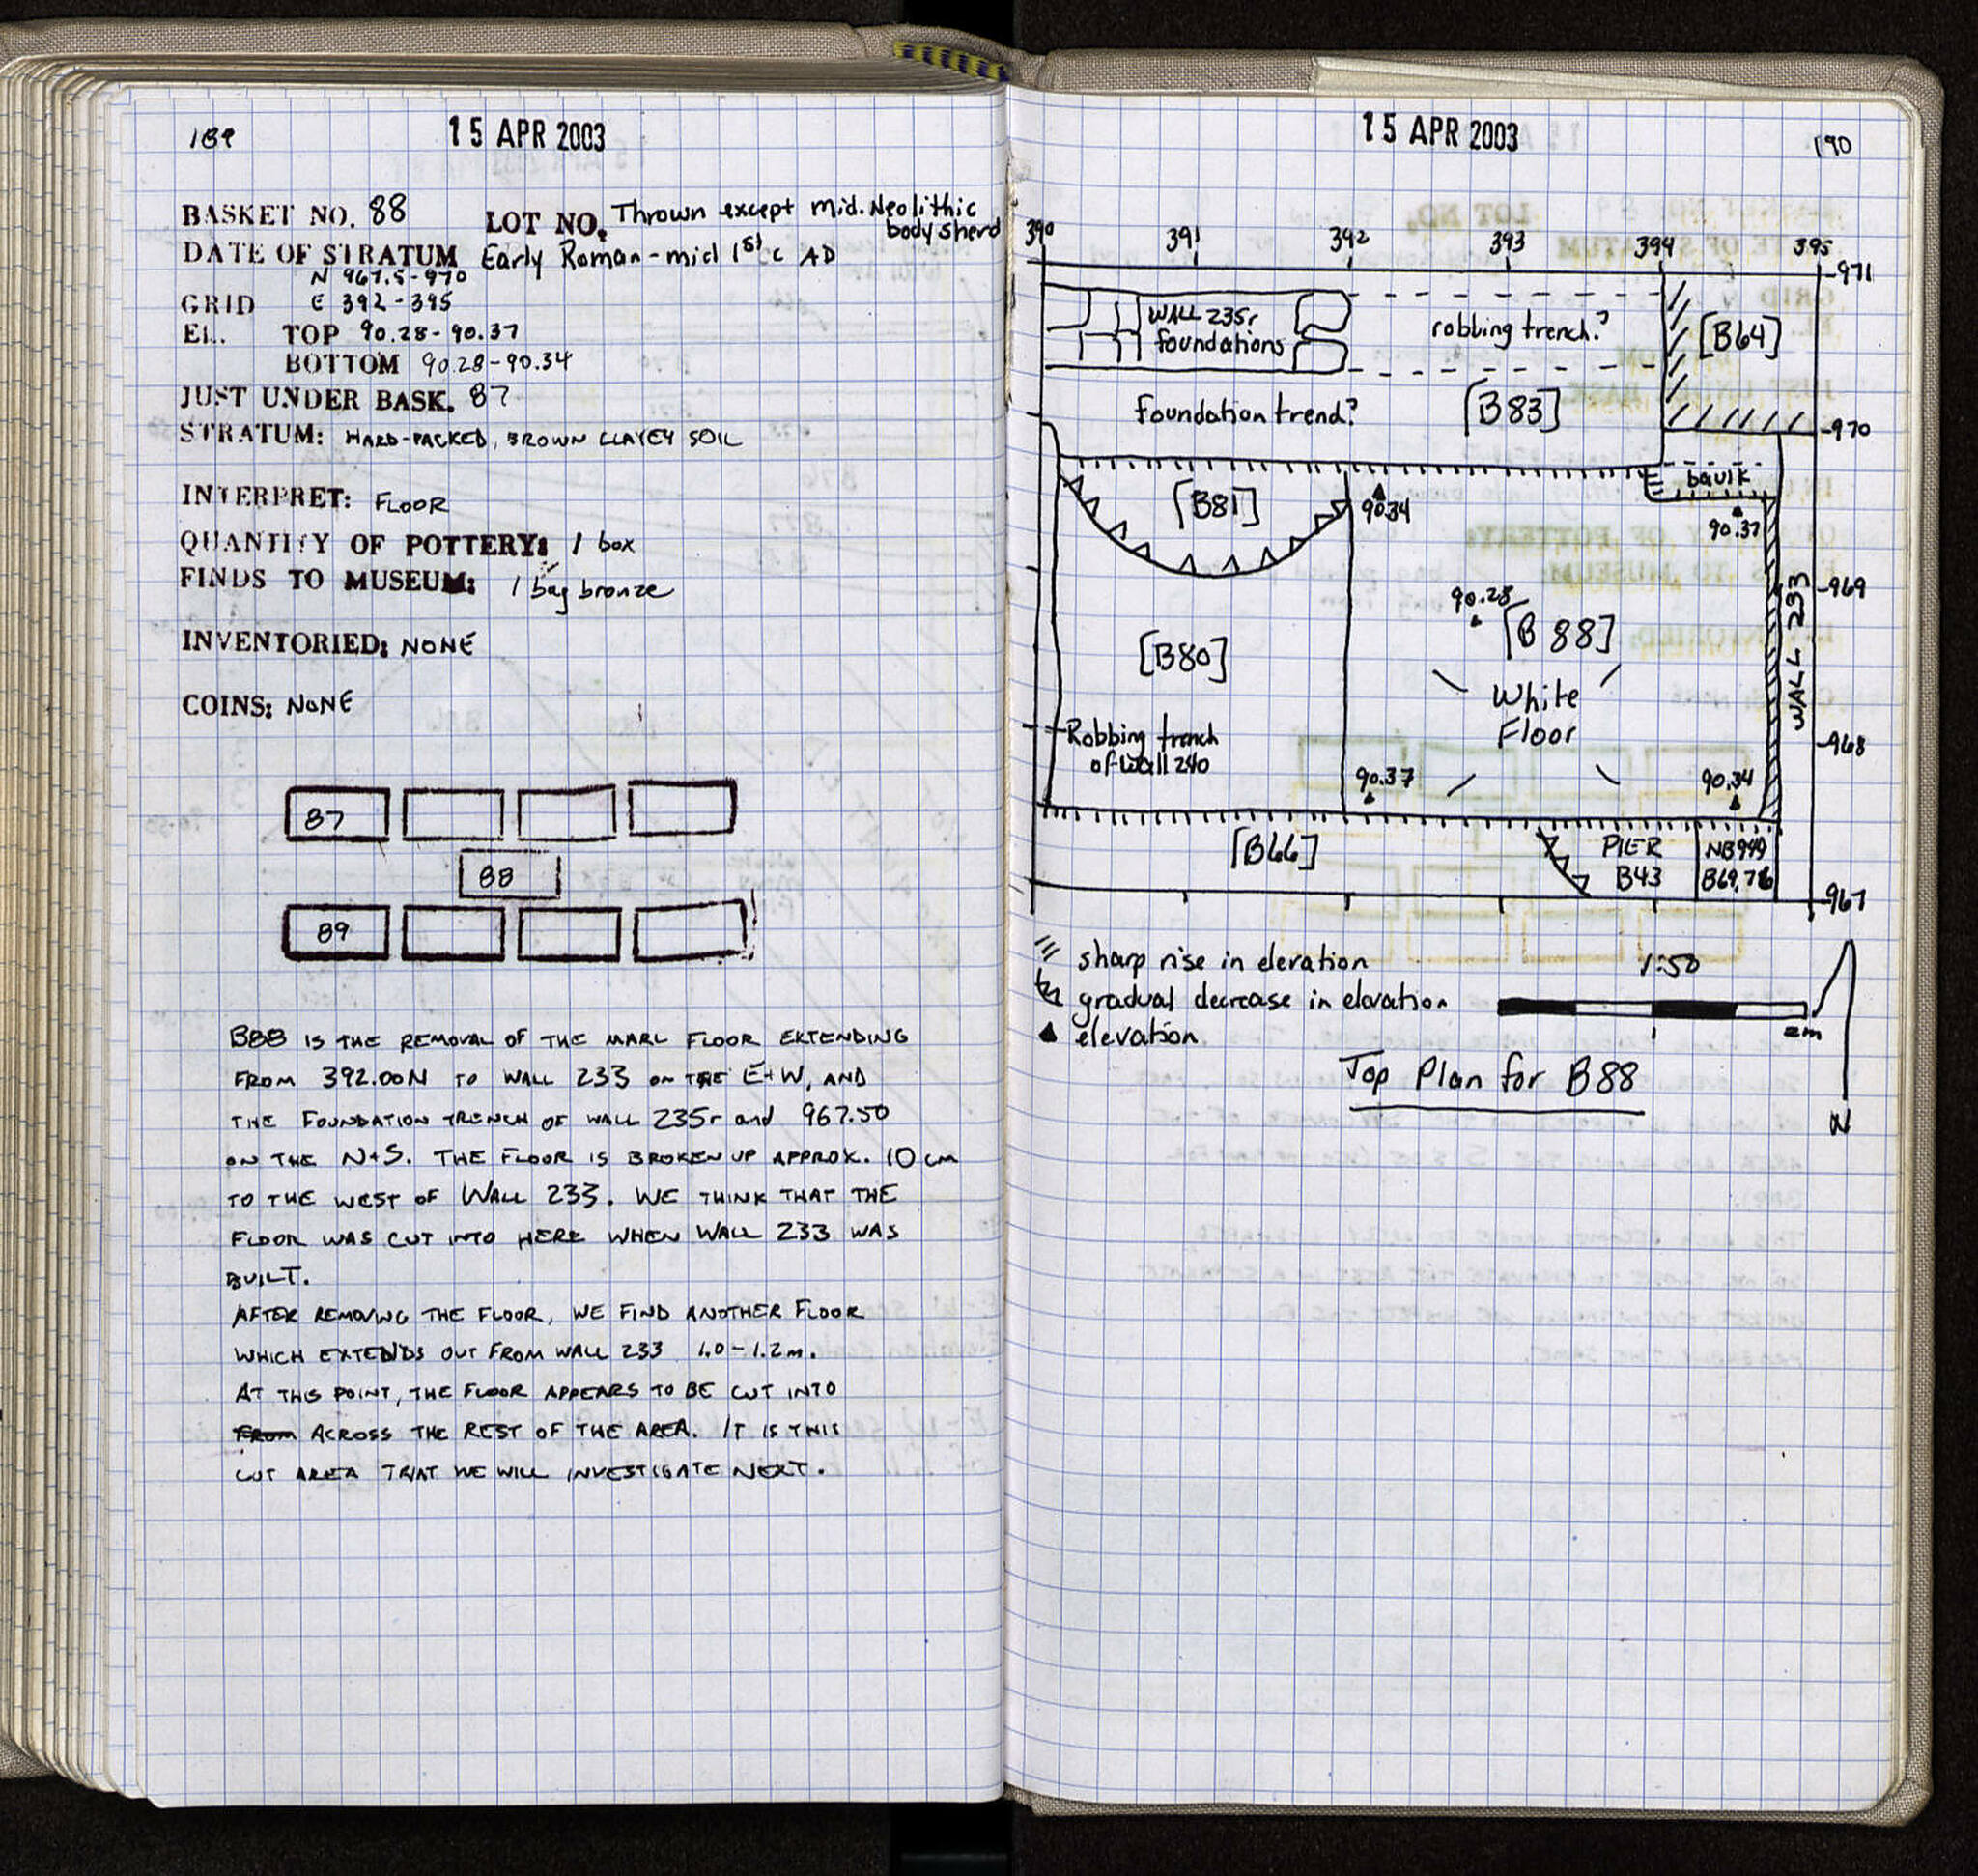 189
15 APR 2003
BASKET NO. 88 LOT NO. Thrown except mid. Neolithic
body sherd
DATE OF STRATUM Early Roman - mid 1st c AD
N 967.5-970
GRID E 392-395
EL. TOP 90.28-90.37
BOTTOM 90.28-90.34
JUST UNDER BASK. 87
STRATUM: HARD-PACKED, BROWN CLAYEY SOIL
INTERPRET: FLOOR
QUANTITY OF POTTERY: 1 box
FINDS TO MUSEUM: 1 bag bronze
INVENTORIED: NONE
COINS: NONE
87
88
89
B88 IS THE REMOVAL OF THE MARL FLOOR EXTENDING
FROM 392.00N TO WALL 233 ON THE E+W, AND
THE FOUNDATION TRENCH OF WALL 235r and 967.50
ON THE N+S. THE FLOOR IS BROKEN UP APPROX. 10 cm
TO THE WEST OF WALL 233. WE THINK THAT THE
FLOOR WAS CUT INTO HERE WHEN WALL 233 WAS
BUILT.
AFTER REMOVING THE FLOOR, WE FIND ANOTHER FLOOR
WHICH EXTENDS OUT FROM WALL 233 1.0-1.2m.
AT THIS POINT, THE FLOOR APPEARS TO BE CUT INTO
FROM ACROSS THE REST OF THE AREA. IT IS THIS
CUT AREA THAT WE WILL INVESTIGATE NEXT.
15 APR 2003
190
390 391 392 393 394 395
-971
WALL 235r
foundations
robbing trench?
[B64]
Foundation trend?
[B83]
-970
baulk
[B81]
90.34
90.37
-969
90.28
[B88]
[B80]
WALL 233
White
Floor
-968
Robbing trench
of Wall 240
90.37
90.34
[B66]
PIER
B43
NB949
B69,76
-967
sharp rise in elevation
gradual decrease in elevation
elevation
1:50
2m
Top Plan for B88
N